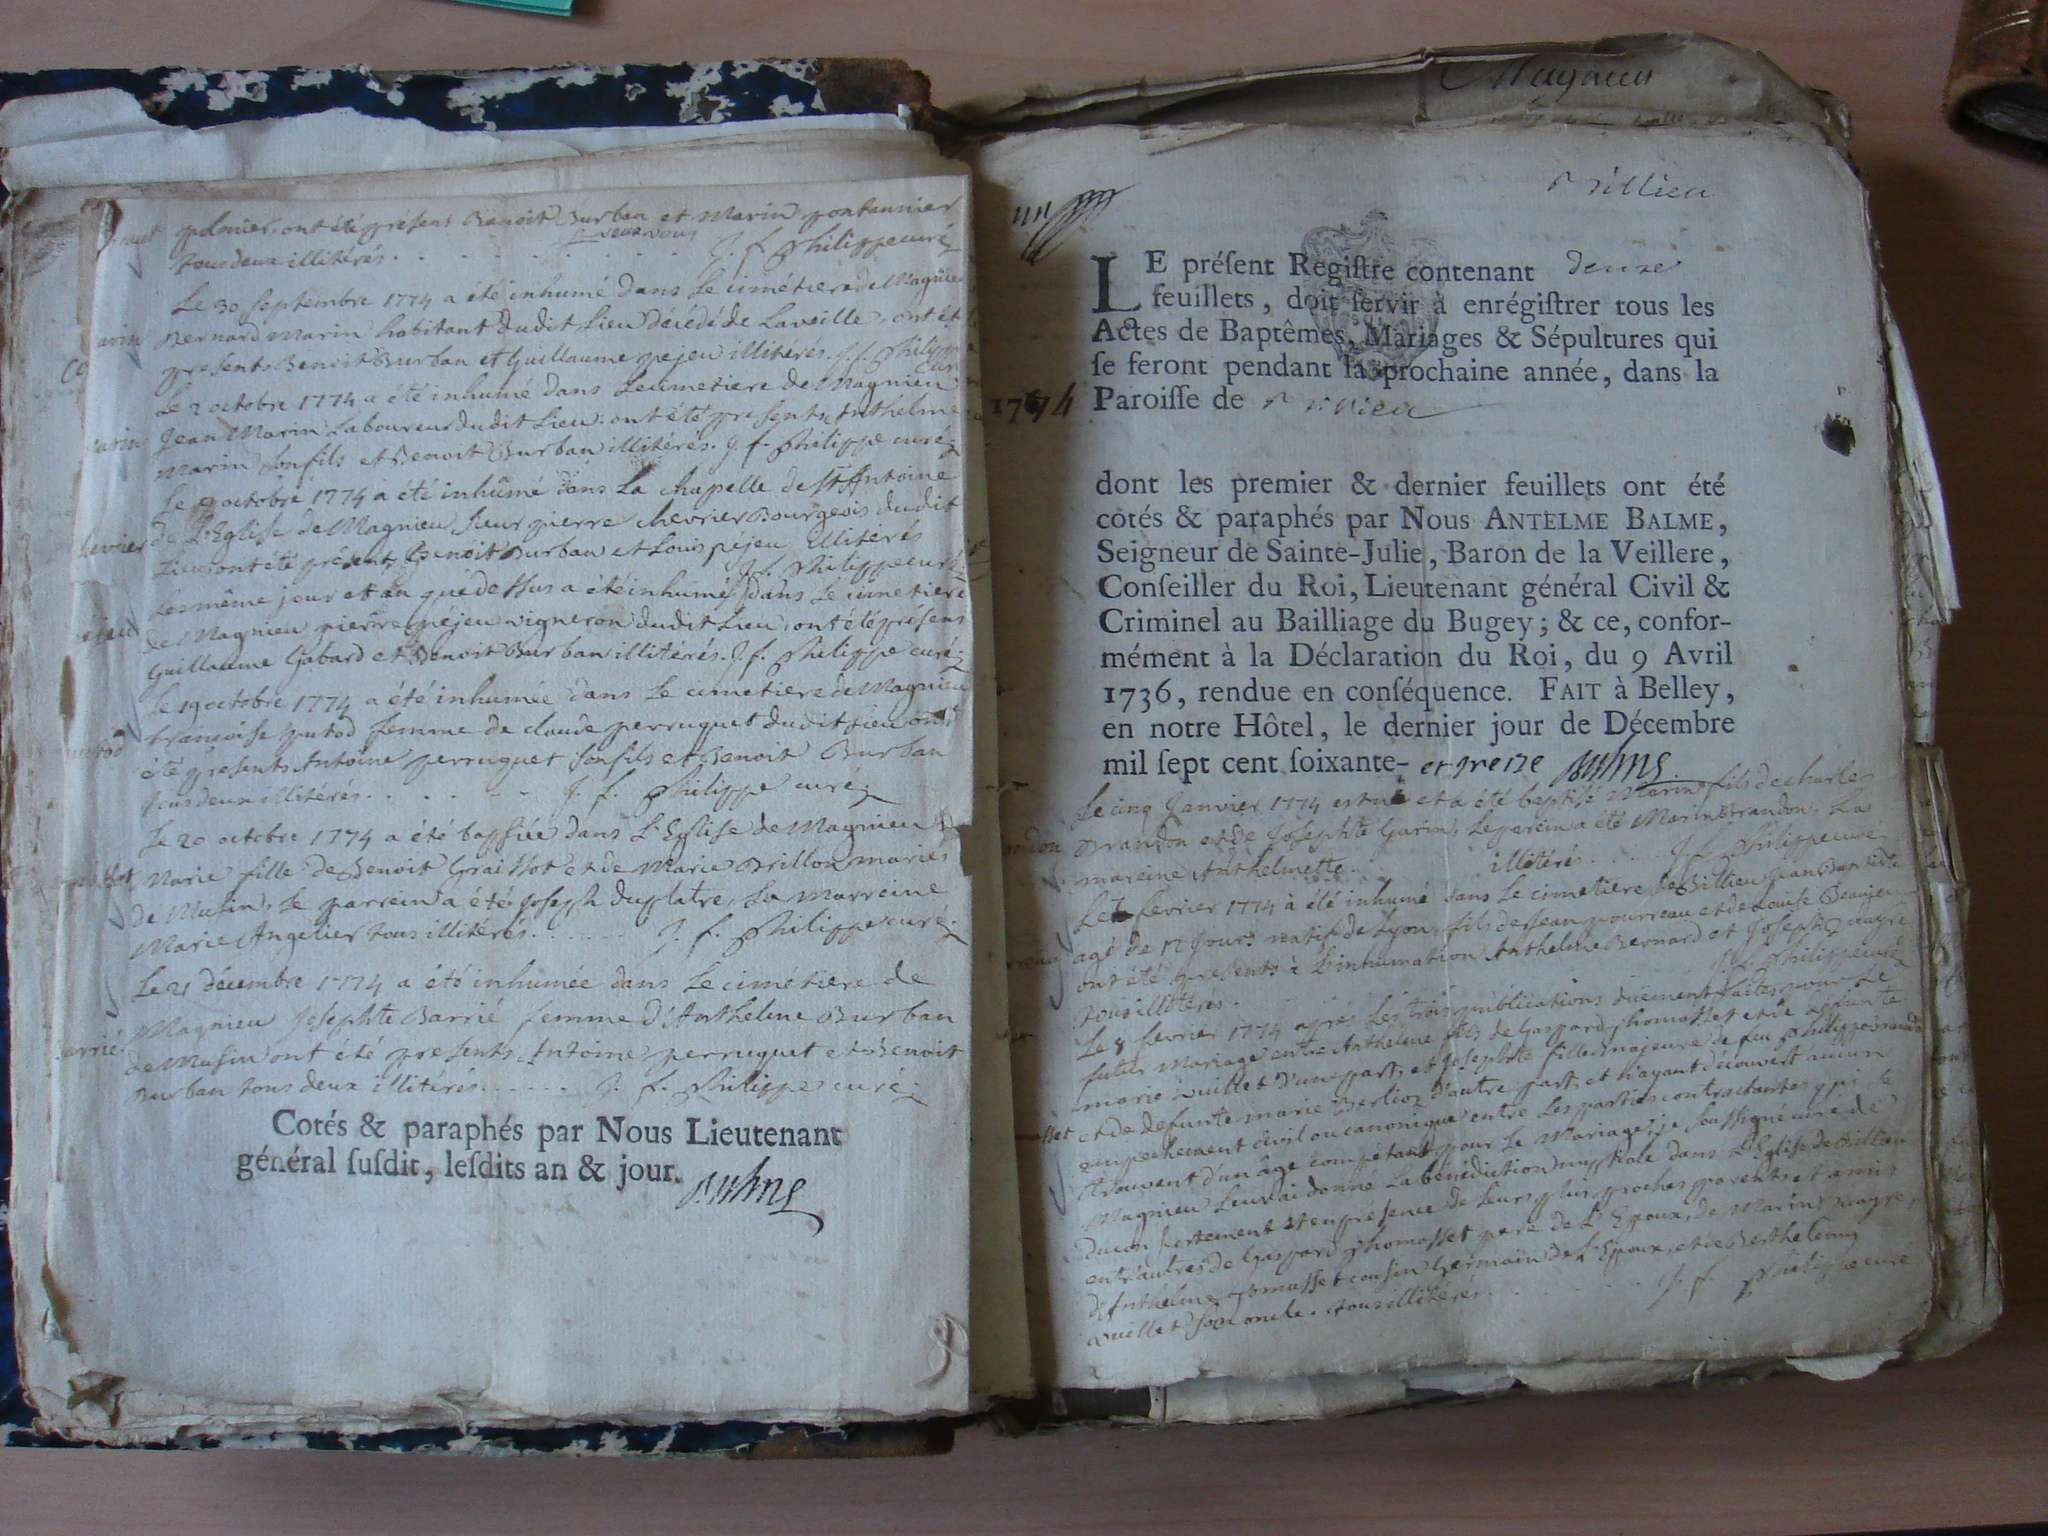 ont été présens Benoit Burban et Marin pontannier
tous deux illitérés. J. f. Philippe curé
Le 30 Septembre 1774 a été inhumé dans Le cimétiere de Magnieu
Bernard Marin habitant dudit Lieu décédé de Laveille. ont été
presents Benoit Burban et Guillaume pejeu illitérés. J. f. Philippe
curé
arin
Le 2 octobre 1774 a été inhumé dans Le cimetiere de Magnieu
Jean Marin Laboureur dudit Lieu. ont été presents Anthelme
Marin son fils et Benoit Burban illitérés. J. f. Philippe curé
marin
Le octobre 1774 a été inhûmé dans La chapelle de St Antoine
de L'Eglise de Magnieu Sieur pierre chevrier Bourgeois dudit
Lieu ont été présents Benoit Burban et Louis pejeu Illitérés
J. f. Philippe curé
hevrier
Les même jour et an que dessus a été inhumé dans Le cimetiere
de Magnieu pierre péjeu vigneron dudit Lieu, ont été présens
Guillaume Gabard et Benoit Burban illitérés. J. f. Philippe curé
ejeu
Le 19 octobre 1774 a été inhumée dans Le cimetiere de Magnieu
francoise putod femme de claude perruquet dudit Lieu ont
été presents Antoine perruquet son fils et Benoit Burban
tous deux illitérés. J. f. Philippe curé
Le 20 octobre 1774 a été baptisée dans L'Eglise de Magnieu
Marie fille de Benoit et de Marie Brillon mariés
de Musin, Le parrein a été Joseph Duplatre, La marreine
Marie Angelier tous illitérés. J. f. Philippe curé
Le 21 décembre 1774 a été inhumée dans Le cimétiere de
Magnieu Josephte Barrié femme d'Anthelme Burban
de Musin ont été presents Antoine perruquet et Benoit
Burban tous deux illitérés. J. f. Philippe curé
arrié
Cotés & paraphés par Nous Lieutenant
général ſuſdit, leſdits an & jour. Balme
Magnieu
Billieu
LE préſent Regiſtre contenant douze
feuillets, doit ſervir à enrégiſtrer tous les
Actes de Baptêmes, Mariages & Sépultures qui
ſe feront pendant la prochaine année, dans la
1774 Paroiſſe de Billieu
dont les premier & dernier feuillets ont été
cotés & paraphés par Nous ANTELME BALME,
Seigneur de Sainte-Julie, Baron de la Veillere,
Conſeiller du Roi, Lieutenant général Civil &
Criminel au Bailliage du Bugey; & ce, confor-
mément à la Déclaration du Roi, du 9 Avril
1736, rendue en conſéquence. FAIT à Belley,
en notre Hôtel, le dernier jour de Décembre
mil ſept cent ſoixante- et treize Balme
Le cinq Janvier 1774 est né et a été baptisé Marin fils de charle
Brandon et de Josephte Garin, Le parein a été Marin Brandon, La
mareine Anthelmette. illitérés. J. f. Philippe curé
Le fevrier 1774 a été inhumé dans Le cimetiere de Billieu Jean Baptiste
agé de 12 Jours natif de Lyon, fils de Jean pourreau et de Louise Beaujeu
ont été presents à L'inhumation Anthelme Bernard et Joseph
tous illitérés. J. f. Philippe curé
Le 8 fevrier 1774 aprés Les trois publications duement faites pour Le
futur Mariage entre Anthelme fils de Gaspard thomasset et de défunte
marie vuillet d'une part, et Josephte fille majeure de feu Philippe
et de defunte marie Berlioz d'autre part, et n'ayant découvert aucun
empechement civil ou canonique entre Les parties contractantes qui se
trouvent d'un âge compétant pour Le Mariage, je soussigné curé de
Magnieu Leur ai donné La bénédiction nuptiale dans L'Eglise de Billieu
du consentement et en présence de Leurs plus proches parents et amis
entr'autres de Gaspard thomasset pere de L'Epoux, de Marin
d'Anthelme thomasset cousin Germain de L'Epoux, et de Berthelemy
vuillet son oncle. tous illitérés. J. f. Philippe curé